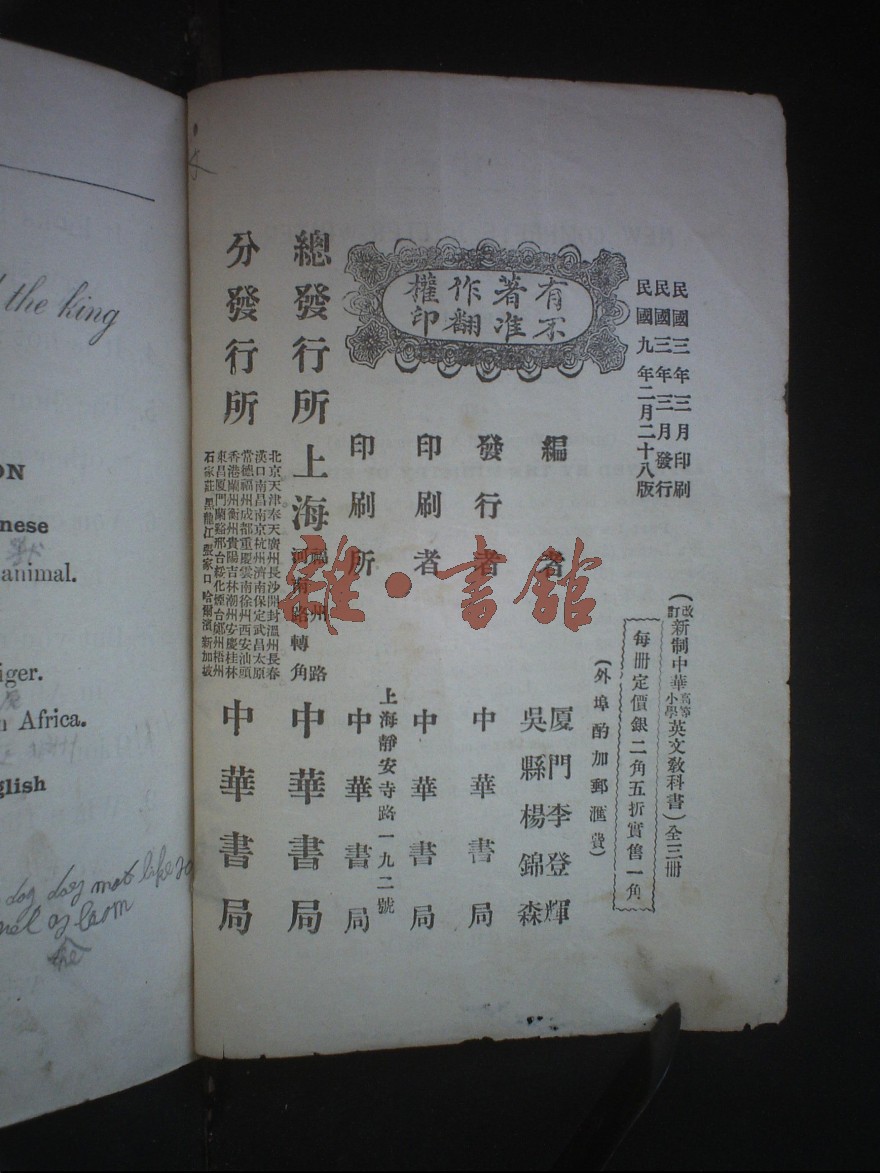 the king
ON
nese
animal.
iger.
n Africa.
glish
dog dog not like
民國三年三月印刷
民國三年三月發行
民國九年二月二十八版
(改訂新制中華高等小學英文教科書)全三冊
每冊定價銀二角五折實售一角
(外埠酌加郵滙費)
有著作權
不准翻印
編者 厦門李登輝
吳縣楊錦森
發行者 中華書局
印刷者 中華書局
上海靜安寺路一九二號
印刷所 中華書局
總發行所 上海福州路河南路轉角 中華書局
分發行所
北京天津奉天廣州長沙開封溫州長春
漢口南昌南京杭州濟南保定武昌太原
常德福州成都重慶雲南徐州西安汕頭
香港蘭州衡州貴陽吉林潮州安慶桂林
東昌厦門蘭谿邢台綏化煙台鄭州梧州
石家莊黑龍江張家口哈爾濱新加坡
中華書局
雜·書館